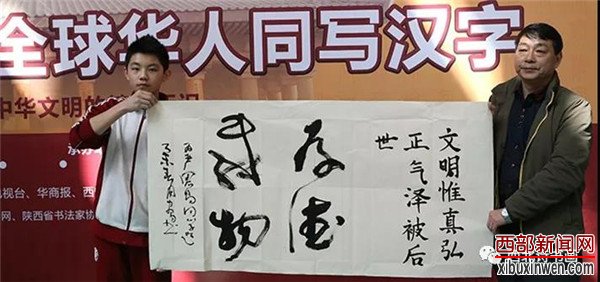 全球华人同写汉字
中华文明的
承办
视台、华商报、西
网、陕西省书法家协
文明惟真弘
正气泽被后
世
厚德
载物
西部新闻网
xibuxinwen.com